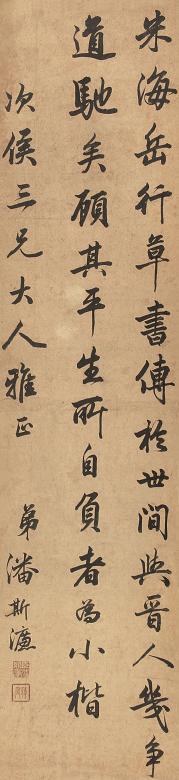 米海岳行草書傳於世間與晋人幾争
道馳矣顧其平生所自負者為小楷
次侯三兄大人雅正
弟潘斯濂